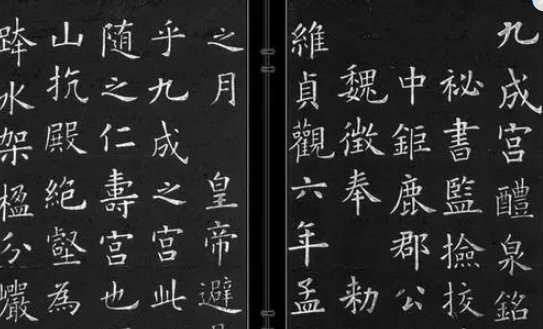 九成宮醴泉銘
祕書監撿挍
中鉅鹿郡公
魏徵奉 勅
維貞觀六年孟
之月 皇帝避
乎九成之宮此
随之仁壽宮也
山抗殿絕壑為
跨水架楹分巖